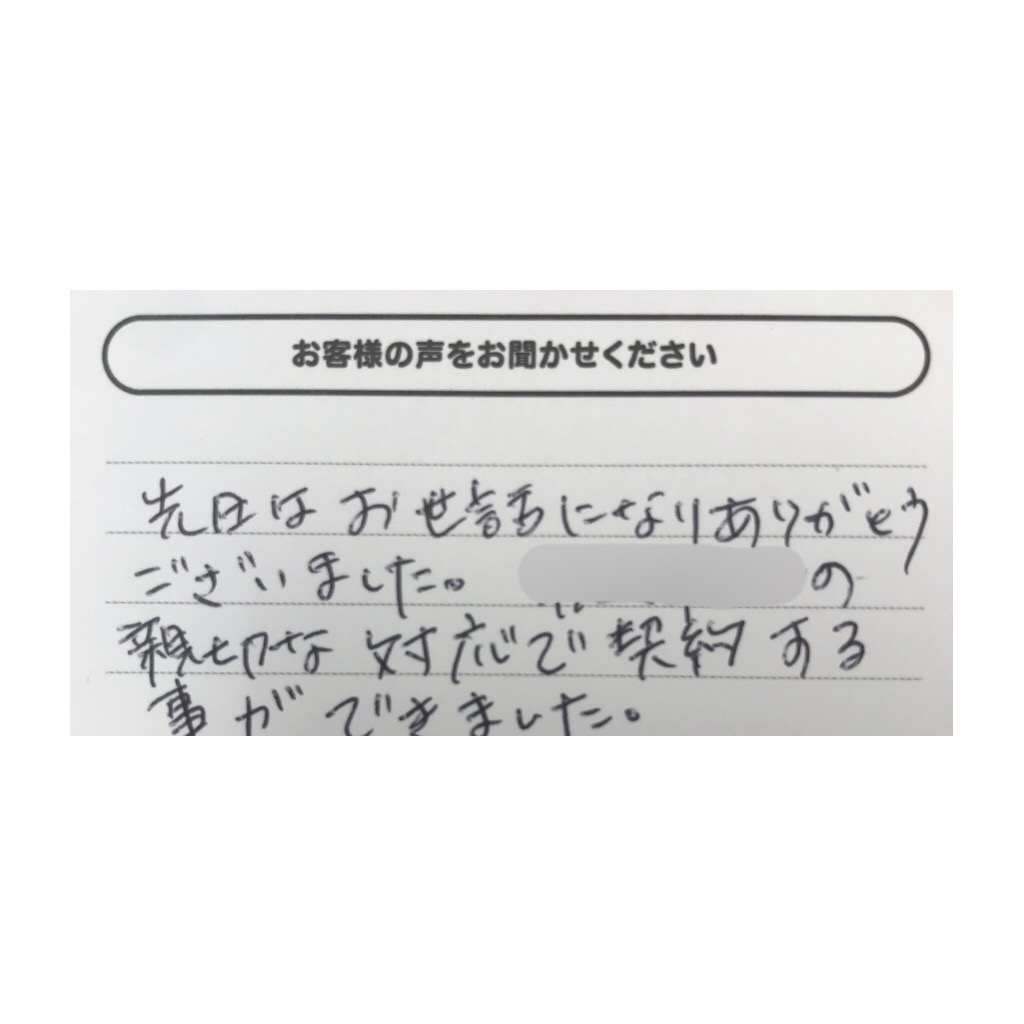 お客様の声をお聞かせください
先日はお世話になりありがとう
ございました。 の
親切な対応で契約する
事ができました。